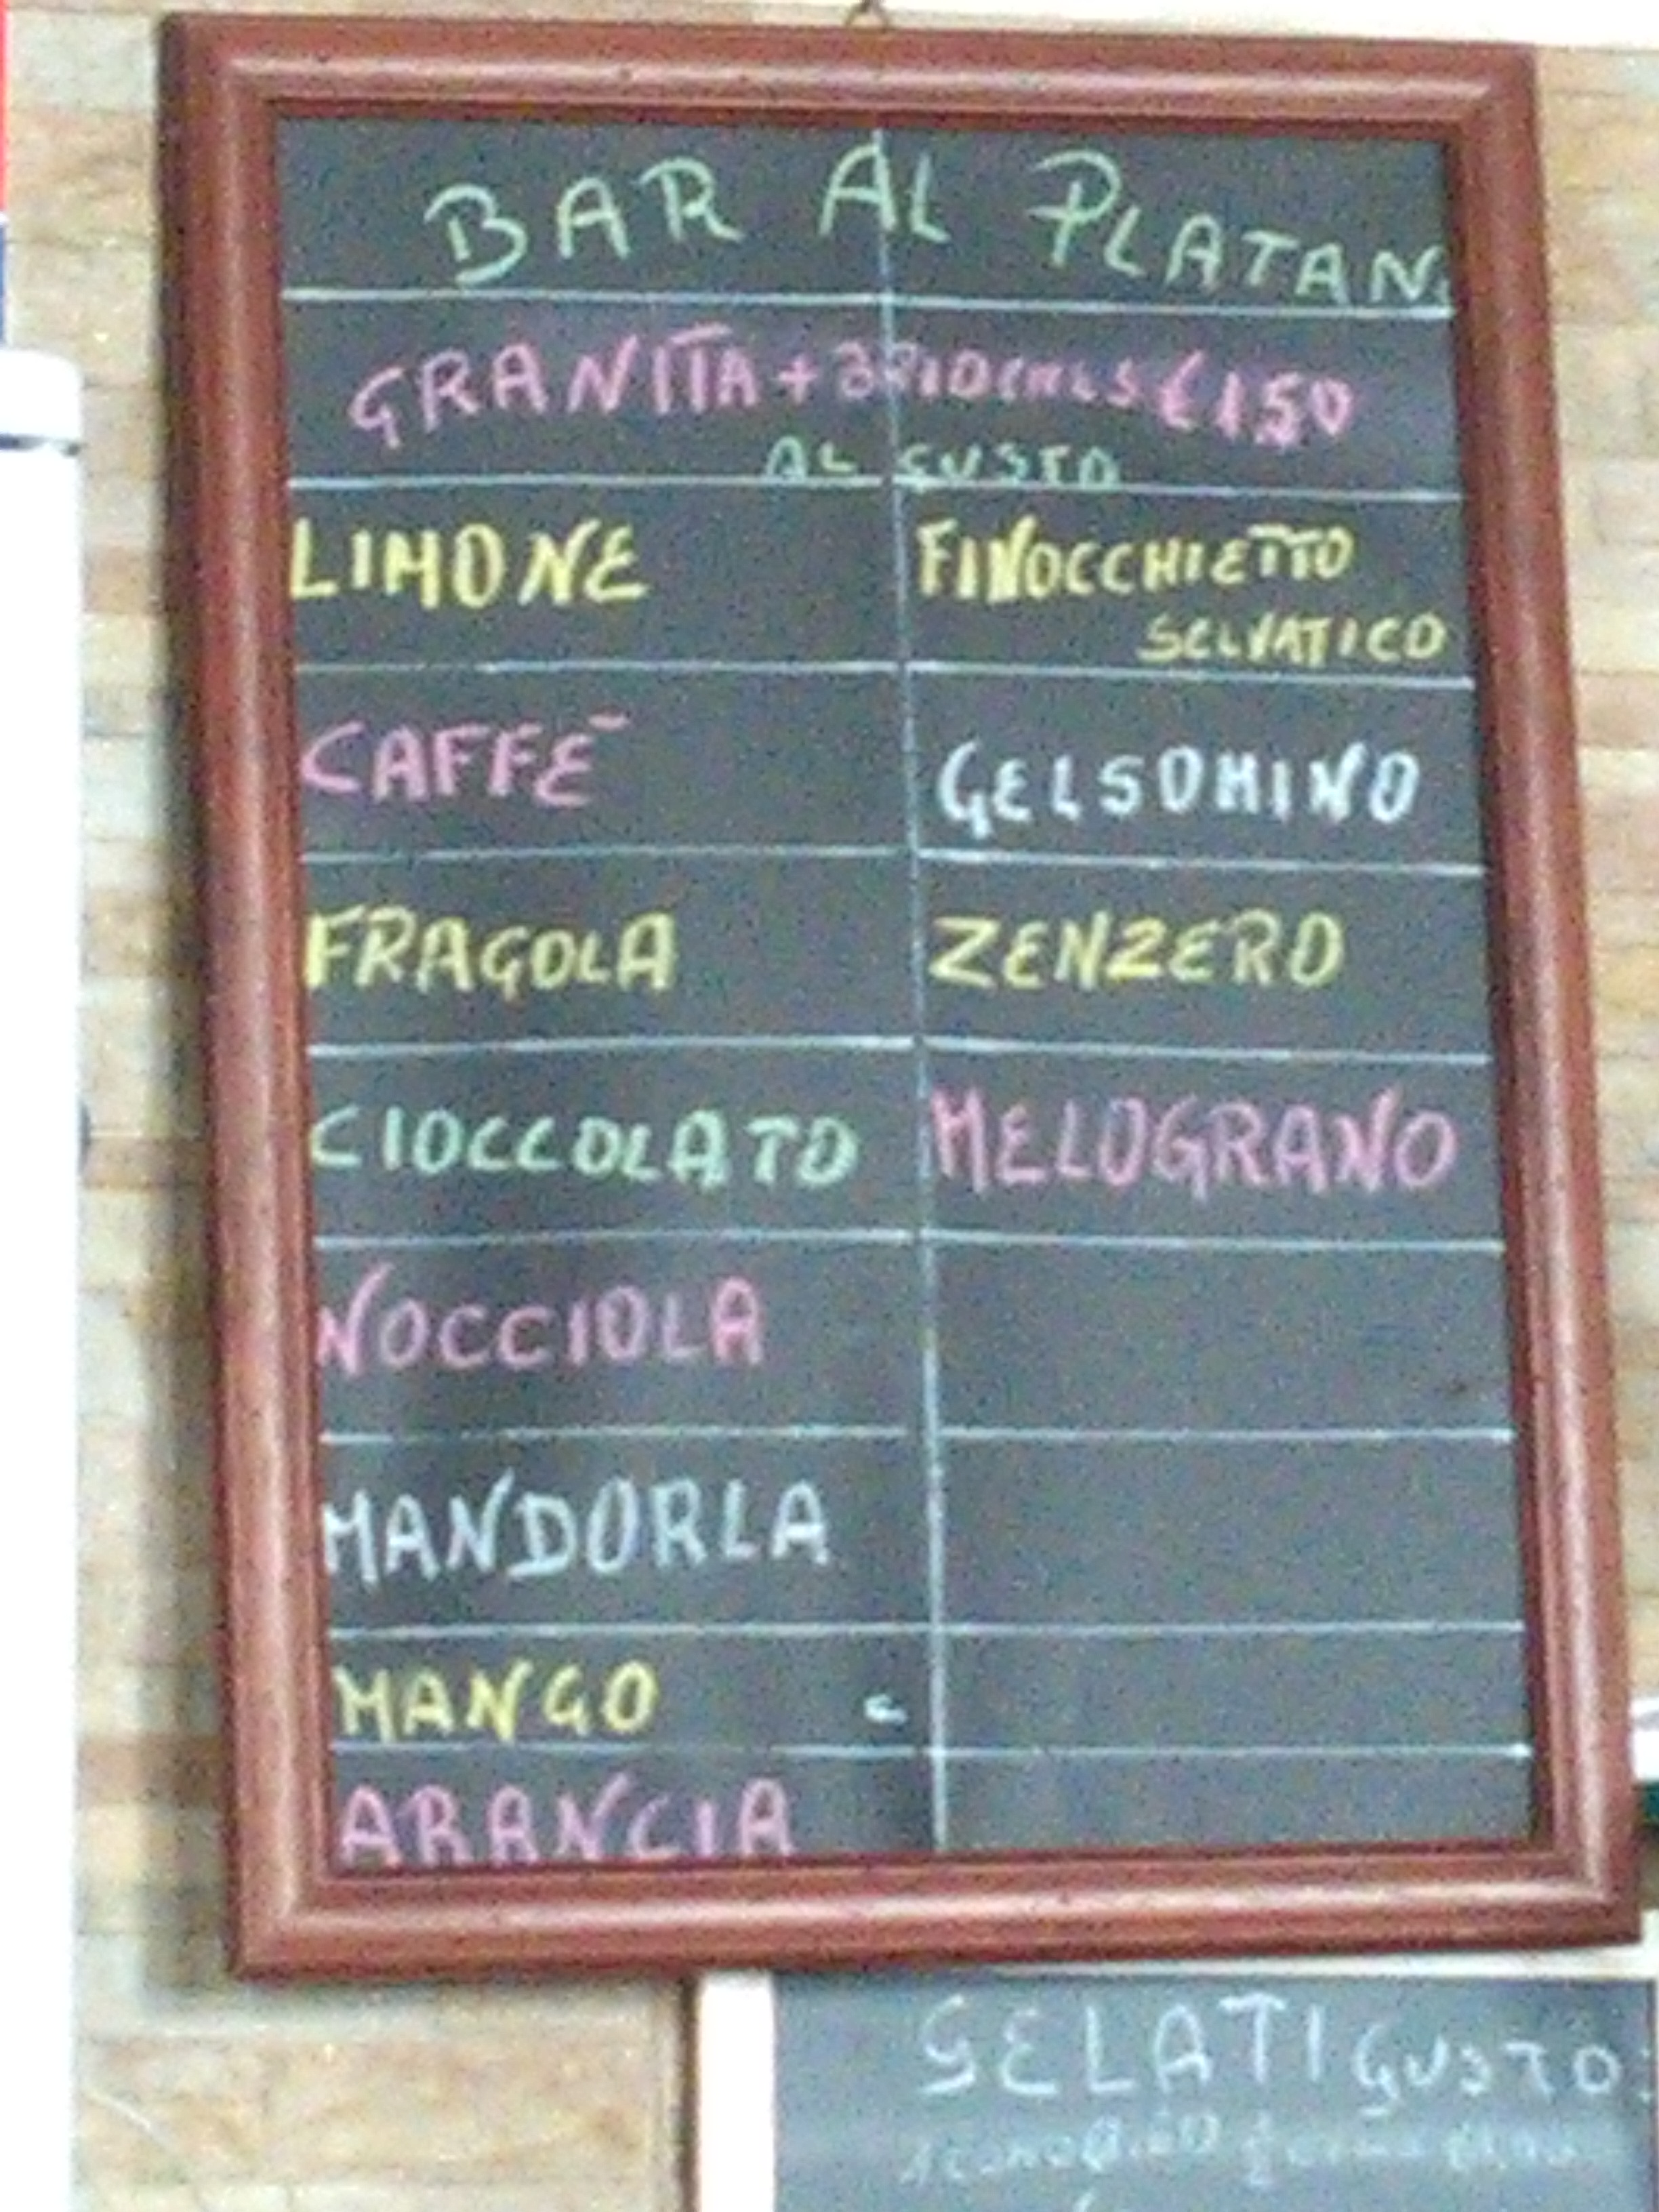 BAR AL PLATANO
GRANITA + € 1,50
AL GUSTO
LIMONE
CAFFĒ
FRAGOLA
CIOCCOLATO
NOCCIOLA
MANDORLA
MANGO
ARANCIA
FINOCCHIETTO
SELVATICO
GELSOMINO
ZENZERO
MELOGRANO
GELATI GUSTO: